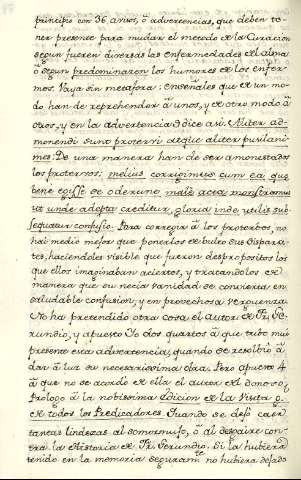 principio con 36. años, ò advertencias, que deben te-
ner presente para mudar el metodo de la Curacion
segun fueren diversas las enfermedades del alma
ò segun predominaren los humores de los enfer-
mos. Vaya sin metafora: enseñales que de un mo-
do han de reprehender à unos, y de otro modo à
otros, y en la advertencia 8 dice asi: Aliter ad-
monendi sunt protervi atque aliter pusilani-
mes: De una manera han de ser amonestados
los protervos: melius corrigimus cum ea que
bene egisse se crederunt, male acta monstramus
ut unde adepta creditur, gloria inde utilis sub-
sequatur confusio. Para corregir à los protervos, no
hai medio mejor que ponerlos de bulto sus dispara-
tes, haciendoles visible que fueron despropositos los
que ellos imaginaban aciertos, y tratandolos de
manera que su necia vanidad se convierta en
saludable confusion, y en provechosa verguenza.
No ha pretendido otra cosa el autor de Fr. Ge-
rundio, y apuesto Yo dos quartos à que tubo mui
presente esta advertencia, quando se resolbiò à
dar à luz su necesarissima obra. Pero apuesto 4
à que no se acordò de ella el autor del donoso,
Prologo à la nobissima Edicion de la
de todos los Predicadores. Quando se dejò caer
tantas lindezas al somormujo, ò al desgaire con-
tra la Historia de Fr. Gerundio. Si la hubiera
tenido en la memoria seguram.te no hubiera dejado